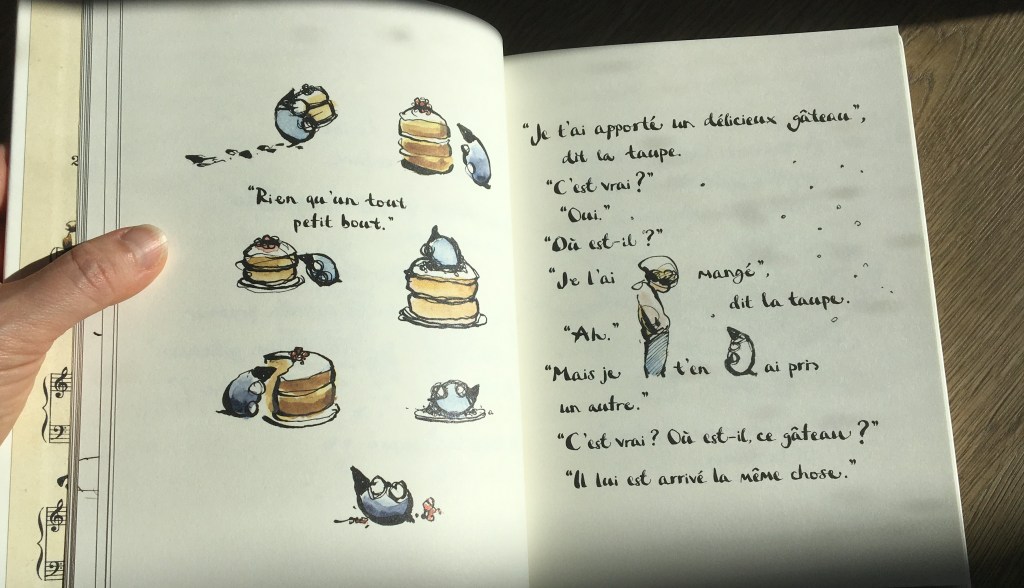 "Rien qu'un tout
petit bout."
"Je t'ai apporté un délicieux gâteau",
dit la taupe.
"C'est vrai?"
"Oui."
"Où est-il?"
"Je l'ai mangé",
dit la taupe.
"Ah."
"Mais je t'en ai pris
un autre."
"C'est vrai? Où est-il, ce gâteau?"
"Il lui est arrivé la même chose."